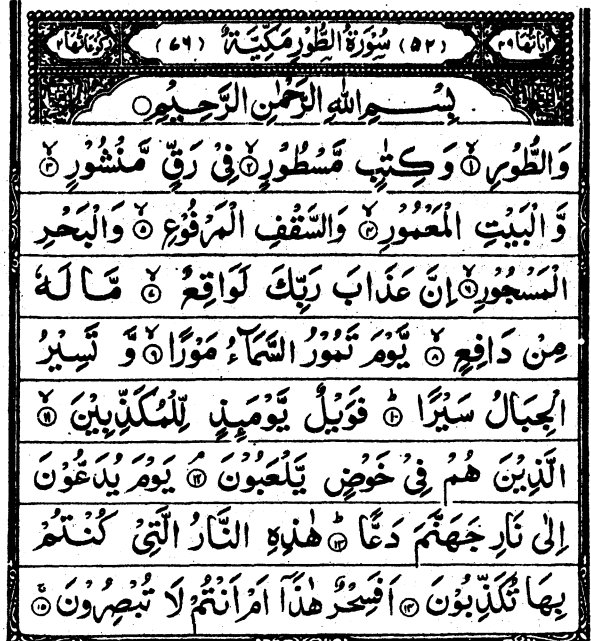 اٰیاتها ۴۹ (۵۲) سُوْرَةُ الطُّوْرِ مَكِّيَّةٌ (۷۶) رکوعاتها ۲
بِسْمِ اللهِ الرَّحْمٰنِ الرَّحِيْمِ
وَالطُّوْرِ ۱ وَكِتٰبٍ مَّسْطُوْرٍ ۲ فِيْ رَقٍّ مَّنْشُوْرٍ ۳
وَّالْبَيْتِ الْمَعْمُوْرِ ۴ وَالسَّقْفِ الْمَرْفُوْعِ ۵ وَالْبَحْرِ
الْمَسْجُوْرِ ۶ اِنَّ عَذَابَ رَبِّكَ لَوَاقِعٌ ۷ مَّا لَهٗ
مِنْ دَافِعٍ ۸ يَّوْمَ تَمُوْرُ السَّمَآءُ مَوْرًا ۹ وَّ تَسِيْرُ
الْجِبَالُ سَيْرًا ۱۰ فَوَيْلٌ يَّوْمَىِٕذٍ لِّلْمُكَذِّبِيْنَ ۱۱
الَّذِيْنَ هُمْ فِيْ خَوْضٍ يَّلْعَبُوْنَ ۱۲ يَوْمَ يُدَعُّوْنَ
اِلٰى نَارِ جَهَنَّمَ دَعًّا ۱۳ هٰذِهِ النَّارُ الَّتِيْ كُنْتُمْ
بِهَا تُكَذِّبُوْنَ ۱۴ اَفَسِحْرٌ هٰذَآ اَمْ اَنْتُمْ لَا تُبْصِرُوْنَ ۱۵